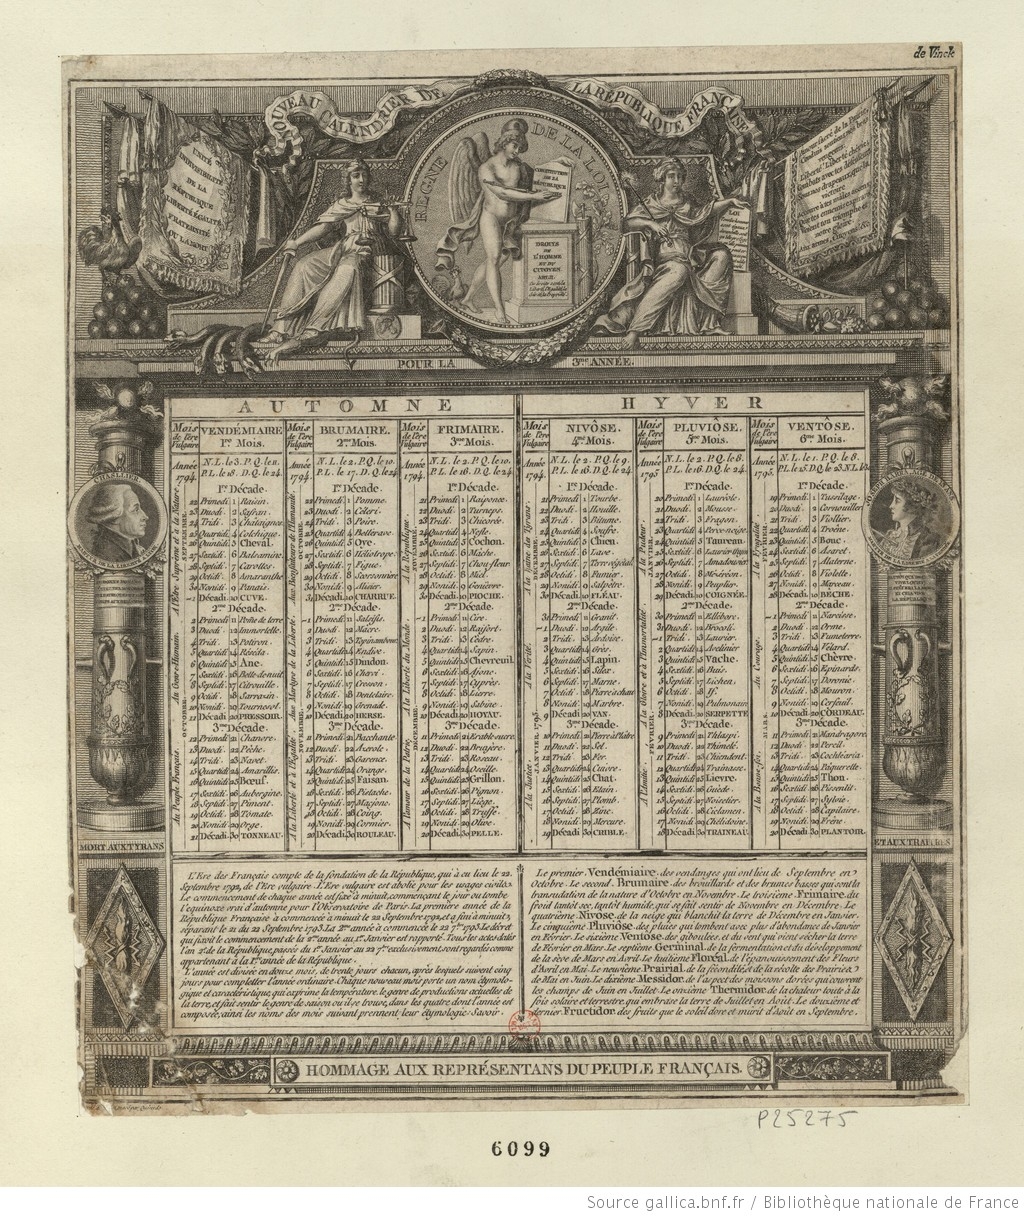 de Vinck
NOUVEAU CALENDRIER DE LA RÉPUBLIQUE FRANÇAISE
UNITÉ
INDIVISIBILITÉ
DE LA
RÉPUBLIQUE
LIBERTÉ EGALITÉ
FRATERNITÉ
OU LA MORT
REGNE DE LA LOI
CONSTITUTION
DE LA
RÉPUBLIQUE
DROITS
DE
L'HOMME
ET DU
CITOYEN
LOI
POUR LA 3me ANNÉE.
AUTOMNE
HYVER
Mois de l'ere Vulgaire
VENDÉMIAIRE
1er Mois.
Année 1794.
N.L. le 3. P.Q. le 11.
P.L. le 18. D.Q. le 24.
1re Décade.
22 Primedi 1 Raisin.
23 Duodi 2 Safran.
24 Tridi 3 Chataignes
25 Quartidi 4 Colchique
26 Quintidi 5 Cheval.
27 Sextidi 6 Balsamine.
28 Septidi 7 Carottes.
29 Octidi 8 Amaranthe
30 Nonidi 9 Panais.
1 Décadi 10 CUVE.
2me Décade.
2 Primedi 11 Pome de terre
3 Duodi 12 Immortelle.
4 Tridi 13 Potiron.
5 Quartidi 14 Réséda.
6 Quintidi 15 Ane.
7 Sextidi 16 Belle-de-nuit
8 Septidi 17 Citrouille.
9 Octidi 18 Sarrazin.
10 Nonidi 19 Tournesol.
11 Décadi 20 PRESSOIR.
3me Décade.
12 Primedi 21 Chanvre.
13 Duodi 22 Pêche.
14 Tridi 23 Navet.
15 Quartidi 24 Amarillis.
16 Quintidi 25 Bœuf.
17 Sextidi 26 Aubergine.
18 Septidi 27 Piment.
19 Octidi 28 Tomate.
20 Nonidi 29 Orge.
21 Décadi 30 TONNEAU.
Mois de l'ere Vulgaire
BRUMAIRE.
2me Mois.
Année 1794.
N.L. le 2. P.Q. le 10.
P.L. le 17. D.Q. le 24
1re Décade.
22 Primedi 1 Pomme.
23 Duodi 2 Céleri.
24 Tridi 3 Poire.
25 Quartidi 4 Betterave.
26 Quintidi 5 Oye.
27 Sextidi 6 Héliotrope.
28 Septidi 7 Figue.
29 Octidi 8 Scorsonère
30 Nonidi 9 Alisier.
31 Décadi 10 CHARRUE.
2me Décade.
1 Primedi 11 Salsifis.
2 Duodi 12 Macre.
3 Tridi 13 Topinambour.
4 Quartidi 14 Endive.
5 Quintidi 15 Dindon.
6 Sextidi 16 Chervi.
7 Septidi 17 Cresson.
8 Octidi 18 Dentelaire.
9 Nonidi 19 Grenade.
10 Décadi 20 HERSE.
3me Décade.
11 Primedi 21 Bacchante.
12 Duodi 22 Azerole.
13 Tridi 23 Garence.
14 Quartidi 24 Orange.
15 Quintidi 25 Faisan.
16 Sextidi 26 Pistache.
17 Septidi 27 Macjonc.
18 Octidi 28 Coing.
19 Nonidi 29 Cormier.
20 Décadi 30 ROULEAU.
Mois de l'ere Vulgaire
FRIMAIRE.
3me Mois.
Année 1794.
N.L. le 2. P.Q. le 10.
P.L. le 16. D.Q. le 24
1re Décade.
21 Primedi 1 Raiponce.
22 Duodi 2 Turneps.
23 Tridi 3 Chicorée.
24 Quartidi 4 Nefle.
25 Quintidi 5 Cochon.
26 Sextidi 6 Mâche.
27 Septidi 7 Chou fleur
28 Octidi 8 Miel.
29 Nonidi 9 Genièvre.
30 Décadi 10 PIOCHE.
2me Décade.
1 Primedi 11 Cire.
2 Duodi 12 Raifort.
3 Tridi 13 Cedre.
4 Quartidi 14 Sapin.
5 Quintidi 15 Chevreuil.
6 Sextidi 16 Ajonc.
7 Septidi 17 Cyprès.
8 Octidi 18 Lierre.
9 Nonidi 19 Sabine.
10 Décadi 20 HOYAU.
3me Décade.
11 Primedi 21 Erable-sucre.
12 Duodi 22 Bruyère.
13 Tridi 23 Roseau.
14 Quartidi 24 Oseille.
15 Quintidi 25 Grillon.
16 Sextidi 26 Pignon.
17 Septidi 27 Liège.
18 Octidi 28 Truffe.
19 Nonidi 29 Olive.
20 Décadi 30 PELLE.
Mois de l'ere Vulgaire
NIVÔSE.
4me Mois.
N.L. le 2. P.Q. le 9.
P.L. le 16. D.Q. le 24.
1re Décade.
21 Primedi 1 Tourbe.
22 Duodi 2 Houille.
23 Tridi 3 Bitume.
24 Quartidi 4 Soufre.
25 Quintidi 5 Chien.
26 Sextidi 6 Lave.
27 Septidi 7 Terre végétal
28 Octidi 8 Fumier.
29 Nonidi 9 Salpêtre.
30 Décadi 10 FLÉAU.
2me Décade.
31 Primedi 11 Granit.
1 Duodi 12 Argile.
2 Tridi 13 Ardoise.
3 Quartidi 14 Grès.
4 Quintidi 15 Lapin.
5 Sextidi 16 Silex.
6 Septidi 17 Marne.
7 Octidi 18 Pierre à chaux
8 Nonidi 19 Marbre.
9 Décadi 20 VAN.
3me Décade.
10 Primedi 21 Pierre à Plâtre
11 Duodi 22 Sel.
12 Tridi 23 Fer.
13 Quartidi 24 Cuivre.
14 Quintidi 25 Chat.
15 Sextidi 26 Etain.
16 Septidi 27 Plomb.
17 Octidi 28 Zinc.
18 Nonidi 29 Mercure.
19 Décadi 30 CRIBLE.
Mois de l'ere Vulgaire
PLUVIÔSE.
5me Mois.
Année 1795
N.L. le 2. P.Q. le 8.
P.L. le 16. D.Q. le 24.
1re Décade.
20 Primedi 1 Lauréole.
21 Duodi 2 Mousse.
22 Tridi 3 Fragon.
23 Quartidi 4 Perce-neige.
24 Quintidi 5 Taureau.
25 Sextidi 6 Laurier-thym
26 Septidi 7 Amadouvier.
27 Octidi 8 Mézéréon.
28 Nonidi 9 Peuplier.
29 Décadi 10 COIGNÉE.
2me Décade.
30 Primedi 11 Ellébore.
31 Duodi 12 Brocoli.
1 Tridi 13 Laurier.
2 Quartidi 14 Avelinier
3 Quintidi 15 Vache.
4 Sextidi 16 Buis.
5 Septidi 17 Lichen.
6 Octidi 18 If.
7 Nonidi 19 Pulmonaire
8 Décadi 20 SERPETTE
3me Décade.
9 Primedi 21 Thlaspi.
10 Duodi 22 Thimelé.
11 Tridi 23 Chiendent
12 Quartidi 24 Traînasse.
13 Quintidi 25 Lievre.
14 Sextidi 26 Guède.
15 Septidi 27 Noisetier.
16 Octidi 28 Ciclamen.
17 Nonidi 29 Chélidoine.
18 Décadi 30 TRAINEAU.
Mois de l'ere Vulgaire
VENTÔSE.
6me Mois.
Année 1795
N.L. le 1. P.Q. le 8.
1re Décade.
19 Primedi 1 Tussilage.
20 Duodi 2 Cornouiller
21 Tridi 3 Viollier.
22 Quartidi 4 Troëne.
23 Quintidi 5 Bouc.
24 Sextidi 6 Asaret.
25 Septidi 7 Alaterne.
26 Octidi 8 Violette.
27 Nonidi 9 Marceau.
28 Décadi 10 BECHE.
2me Décade.
1 Primedi 11 Narcisse.
2 Duodi 12 Orme.
3 Tridi 13 Fumeterre.
4 Quartidi 14 Vélard.
5 Quintidi 15 Chèvre.
6 Sextidi 16 Epinards.
7 Septidi 17 Doronic.
8 Octidi 18 Mouron.
9 Nonidi 19 Cerfeuil.
10 Décadi 20 CORDEAU.
3me Décade.
11 Primedi 21 Mandragore.
12 Duodi 22 Percil.
13 Tridi 23 Cochléaria.
14 Quartidi 24 Paquerette.
15 Quintidi 25 Thon.
16 Sextidi 26 Pissenlit.
17 Septidi 27 Sylvie.
18 Octidi 28 Capilaire.
19 Nonidi 29 Frêne.
20 Décadi 30 PLANTOIR.
CHALLIER
MORT AUX TYRANS
ET AUX TRAITRES
L'Ere des Français compte de la fondation de la République, qui à eu lieu le 22.
Septembre 1792, de l'Ere vulgaire. L'Ere vulgaire est abolie pour les usages civils.
Le commencement de chaque année est fixé à minuit, commençant le jour ou tombe
l'équinoxe vrai d'automne pour l'Observatoire de Paris. La première année de la
République Française à commencé à minuit le 22 Septembre 1792, et a fini à minuit,
séparant le 21 du 22 Septembre 1793. La 2me année à commencée le 22 7re 1793. Le décret
qui fixoit le commencement de la 2me année au 1er Janvier est rapporté. Tous les actes datés
l'an 2d de la République, passés du 1er Janvier au 22 7re exclusivement, sont regardés comme
appartenant à la 1re année de la République.
L'année est divisée en douze mois, de trente jours chacun, après lesquels suivent cinq
jours pour completter l'année ordinaire. Chaque nouveau mois porte un nom étymolo-
gique et caractéristique, qui exprime la température, le genre de productions actuelles de
la terre, et fait sentir le genre de saison ou il se trouve, dans les quatre dont l'année est
composée, ainsi les noms des mois suivant prennent leur étymologie. Savoir.
Le premier Vendémiaire, des vendanges qui ont lieu de Septembre en
Octobre. Le second Brumaire, des brouillards et des brumes basses qui sont la
transudation de la nature d'Octobre en Novembre. Le troisième Frimaire, du
froid tantôt sec, tantôt humide, qui se fait sentir de Novembre en Décembre. Le
quatrième Nivose, de la neige qui blanchit la terre de Décembre en Janvier.
Le cinquième Pluviôse, des pluies qui tombent avec plus d'abondance de Janvier
en Février. Le sixième Ventôse, des giboulées, et du vent qui vient sécher la terre
de Février en Mars. Le septième Germinal, de la fermentation et du développement
de la sève de Mars en Avril. Le huitième Floréal, de l'épanouissement des Fleurs
d'Avril en Mai. Le neuvième Prairial, de la fécondité et de la récolte des Prairies
de Mai en Juin. Le dixième Messidor, de l'aspect des moissons dorées qui couvrent
les champs de Juin en Juillet. Le onzième Thermidor, de la chaleur tout à la
fois solaire et terrestre, qui embrase la terre de Juillet en Août. Le douzième et
dernier Fructidor, des fruits que le soleil dore et murit d'Août en Septembre.
HOMMAGE AUX REPRÉSENTANS DU PEUPLE FRANÇAIS.
P25275
6099
Source gallica.bnf.fr / Bibliothèque nationale de France